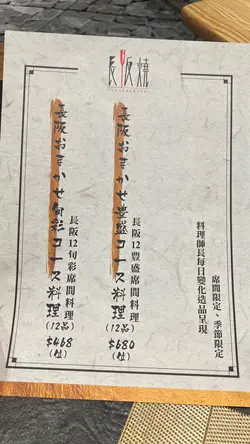 長阪燒
席間限定、季節限定
料理師長每日變化造品呈現
長阪12豊盛席間料理
長阪おまかせ豊盛コース料理
(12品)
$680
(位)
長阪12旬彩席間料理
長阪おまかせ旬彩コース料理
(12品)
$468
(位)